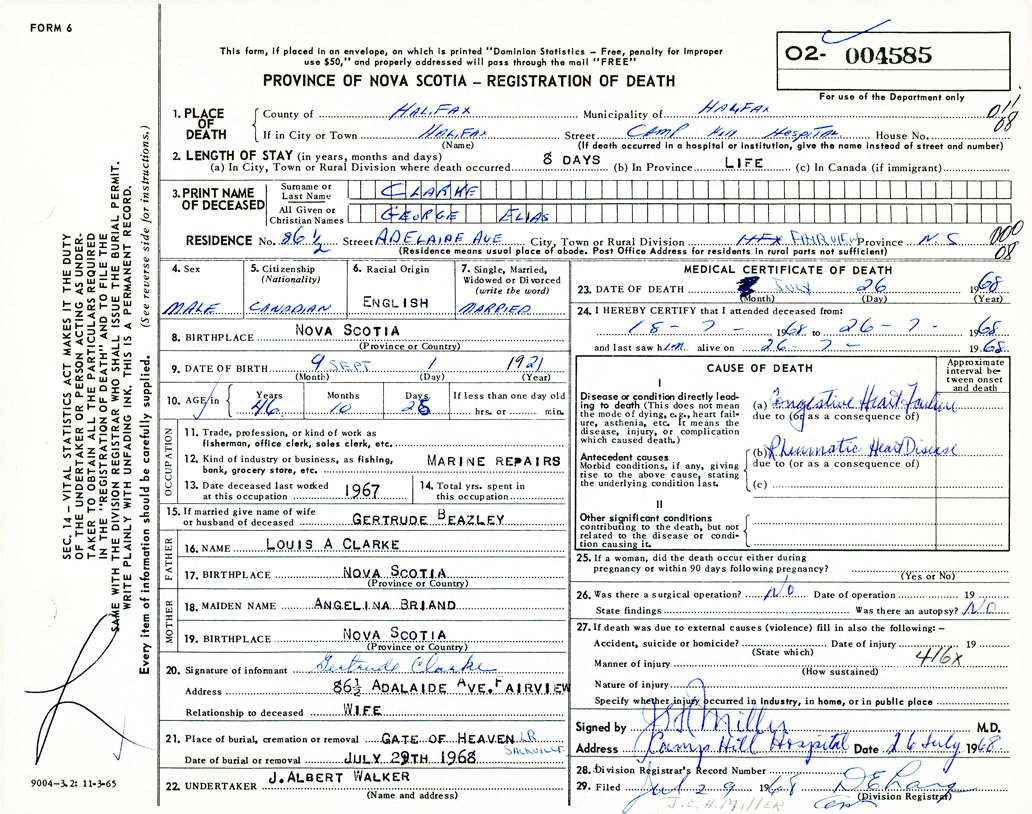 FORM 6
This form, if placed in an envelope, on which is printed "Dominion Statistics – Free, penalty for improper
use $50," and properly addressed will pass through the mail "FREE"
PROVINCE OF NOVA SCOTIA – REGISTRATION OF DEATH
O2- 004585
For use of the Department only
SEC. 14 – VITAL STATISTICS ACT MAKES IT THE DUTY
OF THE UNDERTAKER OR PERSON ACTING AS UNDER-
TAKER TO OBTAIN ALL THE PARTICULARS REQUIRED
IN THE "REGISTRATION OF DEATH" AND TO FILE THE
SAME WITH THE DIVISION REGISTRAR WHO SHALL ISSUE THE BURIAL PERMIT.
WRITE PLAINLY WITH UNFADING INK. THIS IS A PERMANENT RECORD.
Every item of information should be carefully supplied. (See reverse side for instructions.)
9004–3.2: 11-3-65
1. PLACE OF DEATH
County of HALIFAX Municipality of HALIFAX 011
If in City or Town HALIFAX Street CAMP Hill HOSPITAL House No. 08
(Name) (If death occurred in a hospital or institution, give the name instead of street and number)
2. LENGTH OF STAY (in years, months and days)
(a) In City, Town or Rural Division where death occurred 8 DAYS (b) In Province LIFE (c) In Canada (if immigrant)
3. PRINT NAME OF DECEASED
Surname or Last Name CLARKE
All Given or Christian Names GEORGE ELIAS
RESIDENCE No. 86 1/2 Street ADELAIDE AVE City, Town or Rural Division HFX FAIRVIEW Province N.S 000
(Residence means usual place of abode. Post Office Address for residents in rural parts not sufficient) 08
4. Sex MALE
5. Citizenship (Nationality) CANADIAN
6. Racial Origin ENGLISH
7. Single, Married, Widowed or Divorced (write the word) MARRIED
8. BIRTHPLACE NOVA SCOTIA
(Province or Country)
9. DATE OF BIRTH 9 SEPT 1 1921
(Month) (Day) (Year)
10. AGE in Years 46 Months 10 Days 25 If less than one day old hrs. or min.
OCCUPATION
11. Trade, profession, or kind of work as
fisherman, office clerk, sales clerk, etc.
12. Kind of industry or business, as fishing,
bank, grocery store, etc. MARINE REPAIRS
13. Date deceased last worked
at this occupation 1967
14. Total yrs. spent in
this occupation
15. If married give name of wife
or husband of deceased GERTRUDE BEAZLEY
FATHER
16. NAME LOUIS A CLARKE
17. BIRTHPLACE NOVA SCOTIA
(Province or Country)
MOTHER
18. MAIDEN NAME ANGELINA BRIAND
19. BIRTHPLACE NOVA SCOTIA
(Province or Country)
20. Signature of informant Gertrude Clarke
Address 86½ ADALAIDE AVE. FAIRVIEW
Relationship to deceased WIFE
21. Place of burial, cremation or removal GATE OF HEAVEN LR SACKVILLE
Date of burial or removal JULY 29TH 1968
22. UNDERTAKER J. ALBERT WALKER
(Name and address)
MEDICAL CERTIFICATE OF DEATH
23. DATE OF DEATH JULY 26 1968
(Month) (Day) (Year)
24. I HEREBY CERTIFY that I attended deceased from:
18 – 7 – 1968 to 26 – 7 – 1968
and last saw him alive on 26 – 7 – 1968
CAUSE OF DEATH
Approximate interval between onset and death
I
Disease or condition directly lead-
ing to death (This does not
mean the mode of dying, e.g., heart fail-
ure, asthenia, etc. It means the
disease, injury, or complication
which caused death.)
(a) Congestive Heart Failure
due to (or as a consequence of)
Antecedent causes
Morbid conditions, if any, giving
rise to the above cause, stating
the underlying condition last.
(b) Rheumatic Heart Disease
due to (or as a consequence of)
(c)
II
Other significant conditions
contributing to the death, but not
related to the disease or condi-
tion causing it.
25. If a woman, did the death occur either during
pregnancy or within 90 days following pregnancy?
(Yes or No)
26. Was there a surgical operation? NO Date of operation 19
State findings Was there an autopsy? NO
27. If death was due to external causes (violence) fill in also the following: –
Accident, suicide or homicide? Date of injury 19
(State which) 416X
Manner of injury
(How sustained)
Nature of injury
Specify whether injury occurred in industry, in home, or in public place
Signed by Miller M.D.
Address Camp Hill Hospital Date 26 July 1968
28. Division Registrar's Record Number
29. Filed Jul 29 1968
(Division Registrar)
J.C.H. MILLER